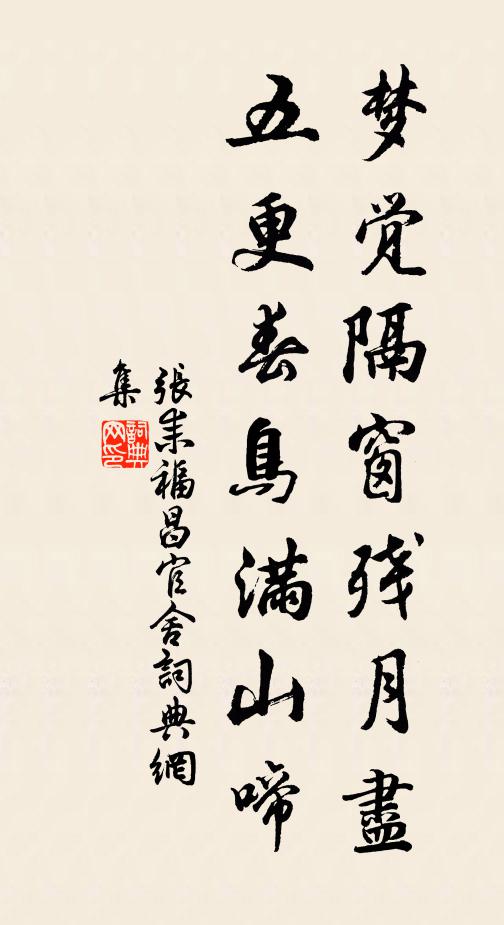 梦觉隔窗残月盡
五更春鳥满山啼
張耒福昌官舍詞典網
集
詞典
网印